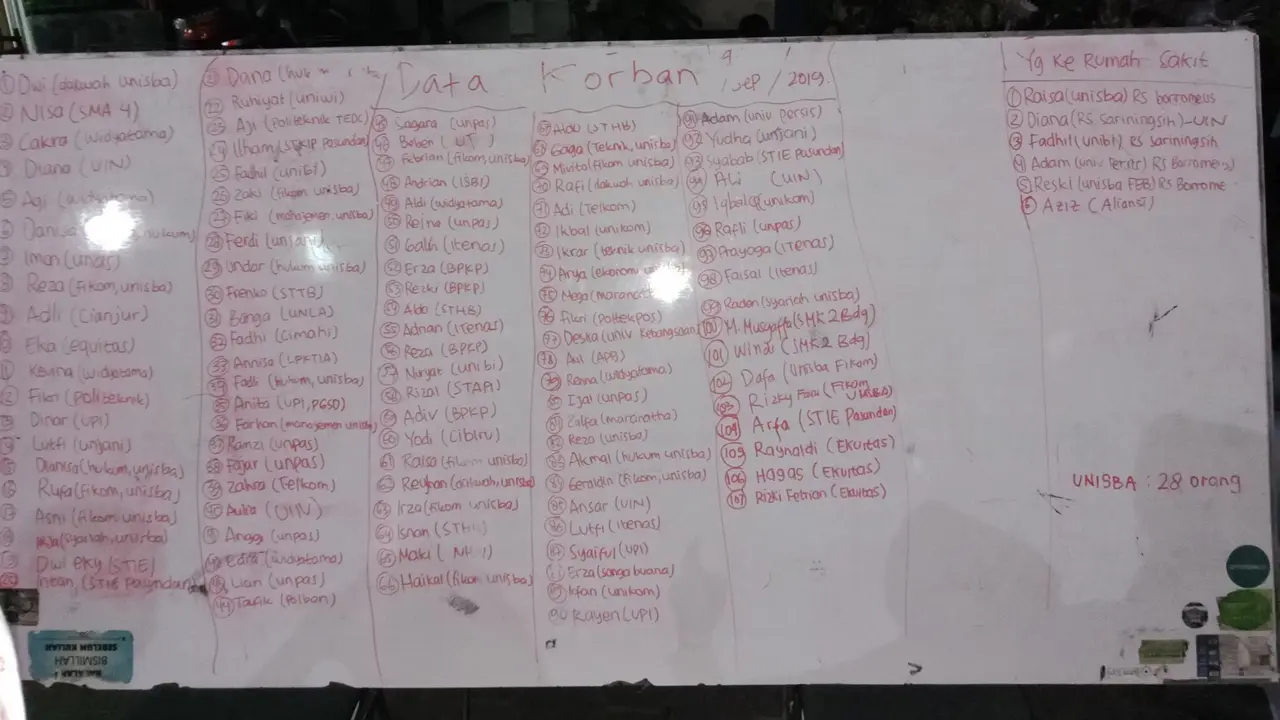 Data Korban 9 / Sep / 2019.
① Dwi (dakwah unisba)
② Nisa (SMA 4)
Cakra (widyatama)
Diana (UIN)
⑤ Agi (widyatama)
hukum)
Iman (unas)
Reza (fikom, unisba)
Adli (Cianjur)
Eka (equitas)
Kevina (widyatama)
Fikri (politeknik)
Dinar (UPI)
Lutfi (unjani)
(hukum, unisba)
Rufa (fikom, unisba)
Asni (fikom unisba)
(syariah, unisba)
Dwi eky (STIE)
Intan, (STIE pasundan)
Dana (huk
Ruhiyat (uniwi)
Aji (Politeknik TEDC)
Ilham (STKIP Pasundan)
Fadhil (unibi)
㉖ Zaki (fikom unisba)
㉗ Fikri (manajemen, unisba)
㉘ Ferdi (unjani)
㉙ Undar (hukum unisba)
㉚ Frenko (STTB)
㉛ Bonga (UNLA)
㉜ Fadhi (cimahi)
㉝ Annisa (LPKTIA)
㉞ Fadli (hukum, unisba)
㉟ Anita (UPI, PGSD)
㊱ Farhan (manajemen unisba)
㊲ Ramzi (unpas)
㊳ Fajar (unpas)
㊴ Zahra (Telkom)
㊵ Aulia (UIN)
Anggi (unpas)
(widyatama)
Lian (unpas)
㊹ Taufik (Polban)
Sagara (unpas)
Beben ( UT )
Febrian (fikom, unisba)
㊽ Andrian (ISBI)
㊾ Aldi (widyatama)
㊿ Reina (unpas)
51 Galih (itenas)
52 Erza (BPKP)
53 Rezki (BPKP)
54 Aldo (STHB)
55 Adnan (ITenas)
56 Reza (BPKP)
57 Nuryat (unibi)
58 Rizal (STAPI)
59 Adiv (BPKP)
60 Yodi (cibiru)
61 Raisa (fikom unisba)
62 Reyhan (dakwah, unisba)
63 Irza (fikom unisba)
64 Isnan (STH
65 Maki
66 Haikal (fikom unisba)
67 Aldo (STHB)
68 Gaga (Teknik, unisba)
69 (fikom unisba)
70 Rafi (dakwah unisba)
71 Adi (Telkom)
72 Ikbal (unikom)
73 Ikrar (teknik unisba)
74 Arya (ekonomi unisba)
75 Mega (maranatha)
76 Fikri (poltekpos)
77 Deska (univ Kebangsaan)
78 Aul (APB)
79 Renna (widyatama)
80 Ijal (unpas)
81 Zalfa (maranatha)
82 Reza (unisba)
83 Akmal (hukum unisba)
84 Geraldin (fikom, unisba)
85 Ansar (UIN)
86 Lutfi (itenas)
87 Syaiful (UPI)
Erza (sangabuana)
89 Irfan (unikom)
90 Rayen (UPI)
91 Adam (univ persis)
92 Yudha (unjani)
93 Syabab (STIE Pasundan)
94 Ali (UIN)
95 Iqbal (unikom)
96 Rafli (unpas)
97 Prayoga (ITenas)
98 Faisal (Itenas)
99 Raden (syariah unisba)
100 M. Musyaffa (SMK 2 Bdg)
101 Windi (SMK 2 Bdg)
102 Dafa (Unisba Fikom)
103 Rizky Faar (Fikom UNISBA)
104 Arfa (STIE Pasundan)
105 Raynaldi (Ekuitas)
106 Hagas (Ekuitas)
107 Rizki Febrian (Ekuitas)
Yg Ke Rumah Sakit
① Raisa (unisba) RS borromeus
② Diana (RS Sariningsih) - UIN
③ Fadhil (unibi) RS sariningsih
④ Adam (univ Persis) RS Borromeus)
⑤ Reski (unisba FEB) RS Borrome
⑥ Aziz (Aliansi)
UNISBA : 28 orang
BISMILLAH
SEBELUM KULIAH